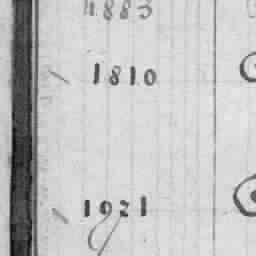 4883
1810
1921